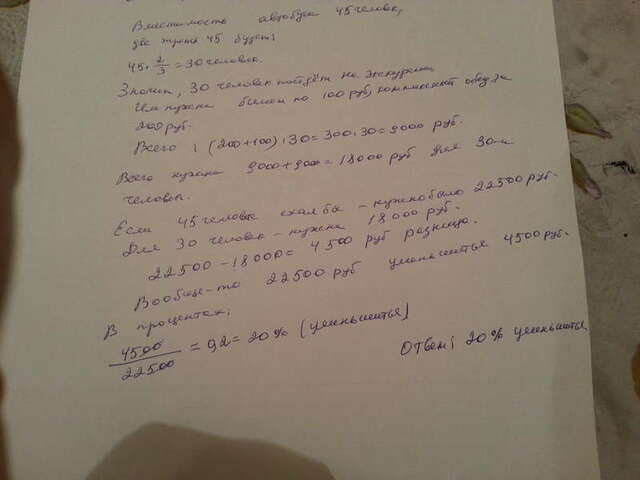 Вместимость автобуса 45 человек,
две трети 45 будет:
45 · 2/3 = 30 человек.
Значит, 30 человек пойдёт на экскурсию
Им нужна билет по 100 руб, комплексный обед за
200 руб.
Всего: (200+100)·30 = 300·30 = 9000 руб.
Всего нужна 9000+9000 = 18000 руб для 30-и
человек.
Если 45 человек ехал бы – нужно было 22500 руб.
Для 30 человек – нужна 18000 руб.
22500 – 18000 = 4500 руб разница.
Вообще-то 22500 руб уменьшитья 4500 руб.
В процентах:
4500/22500 = 0,2 = 20% (уменьшитья)
Ответ: 20% уменьшитья